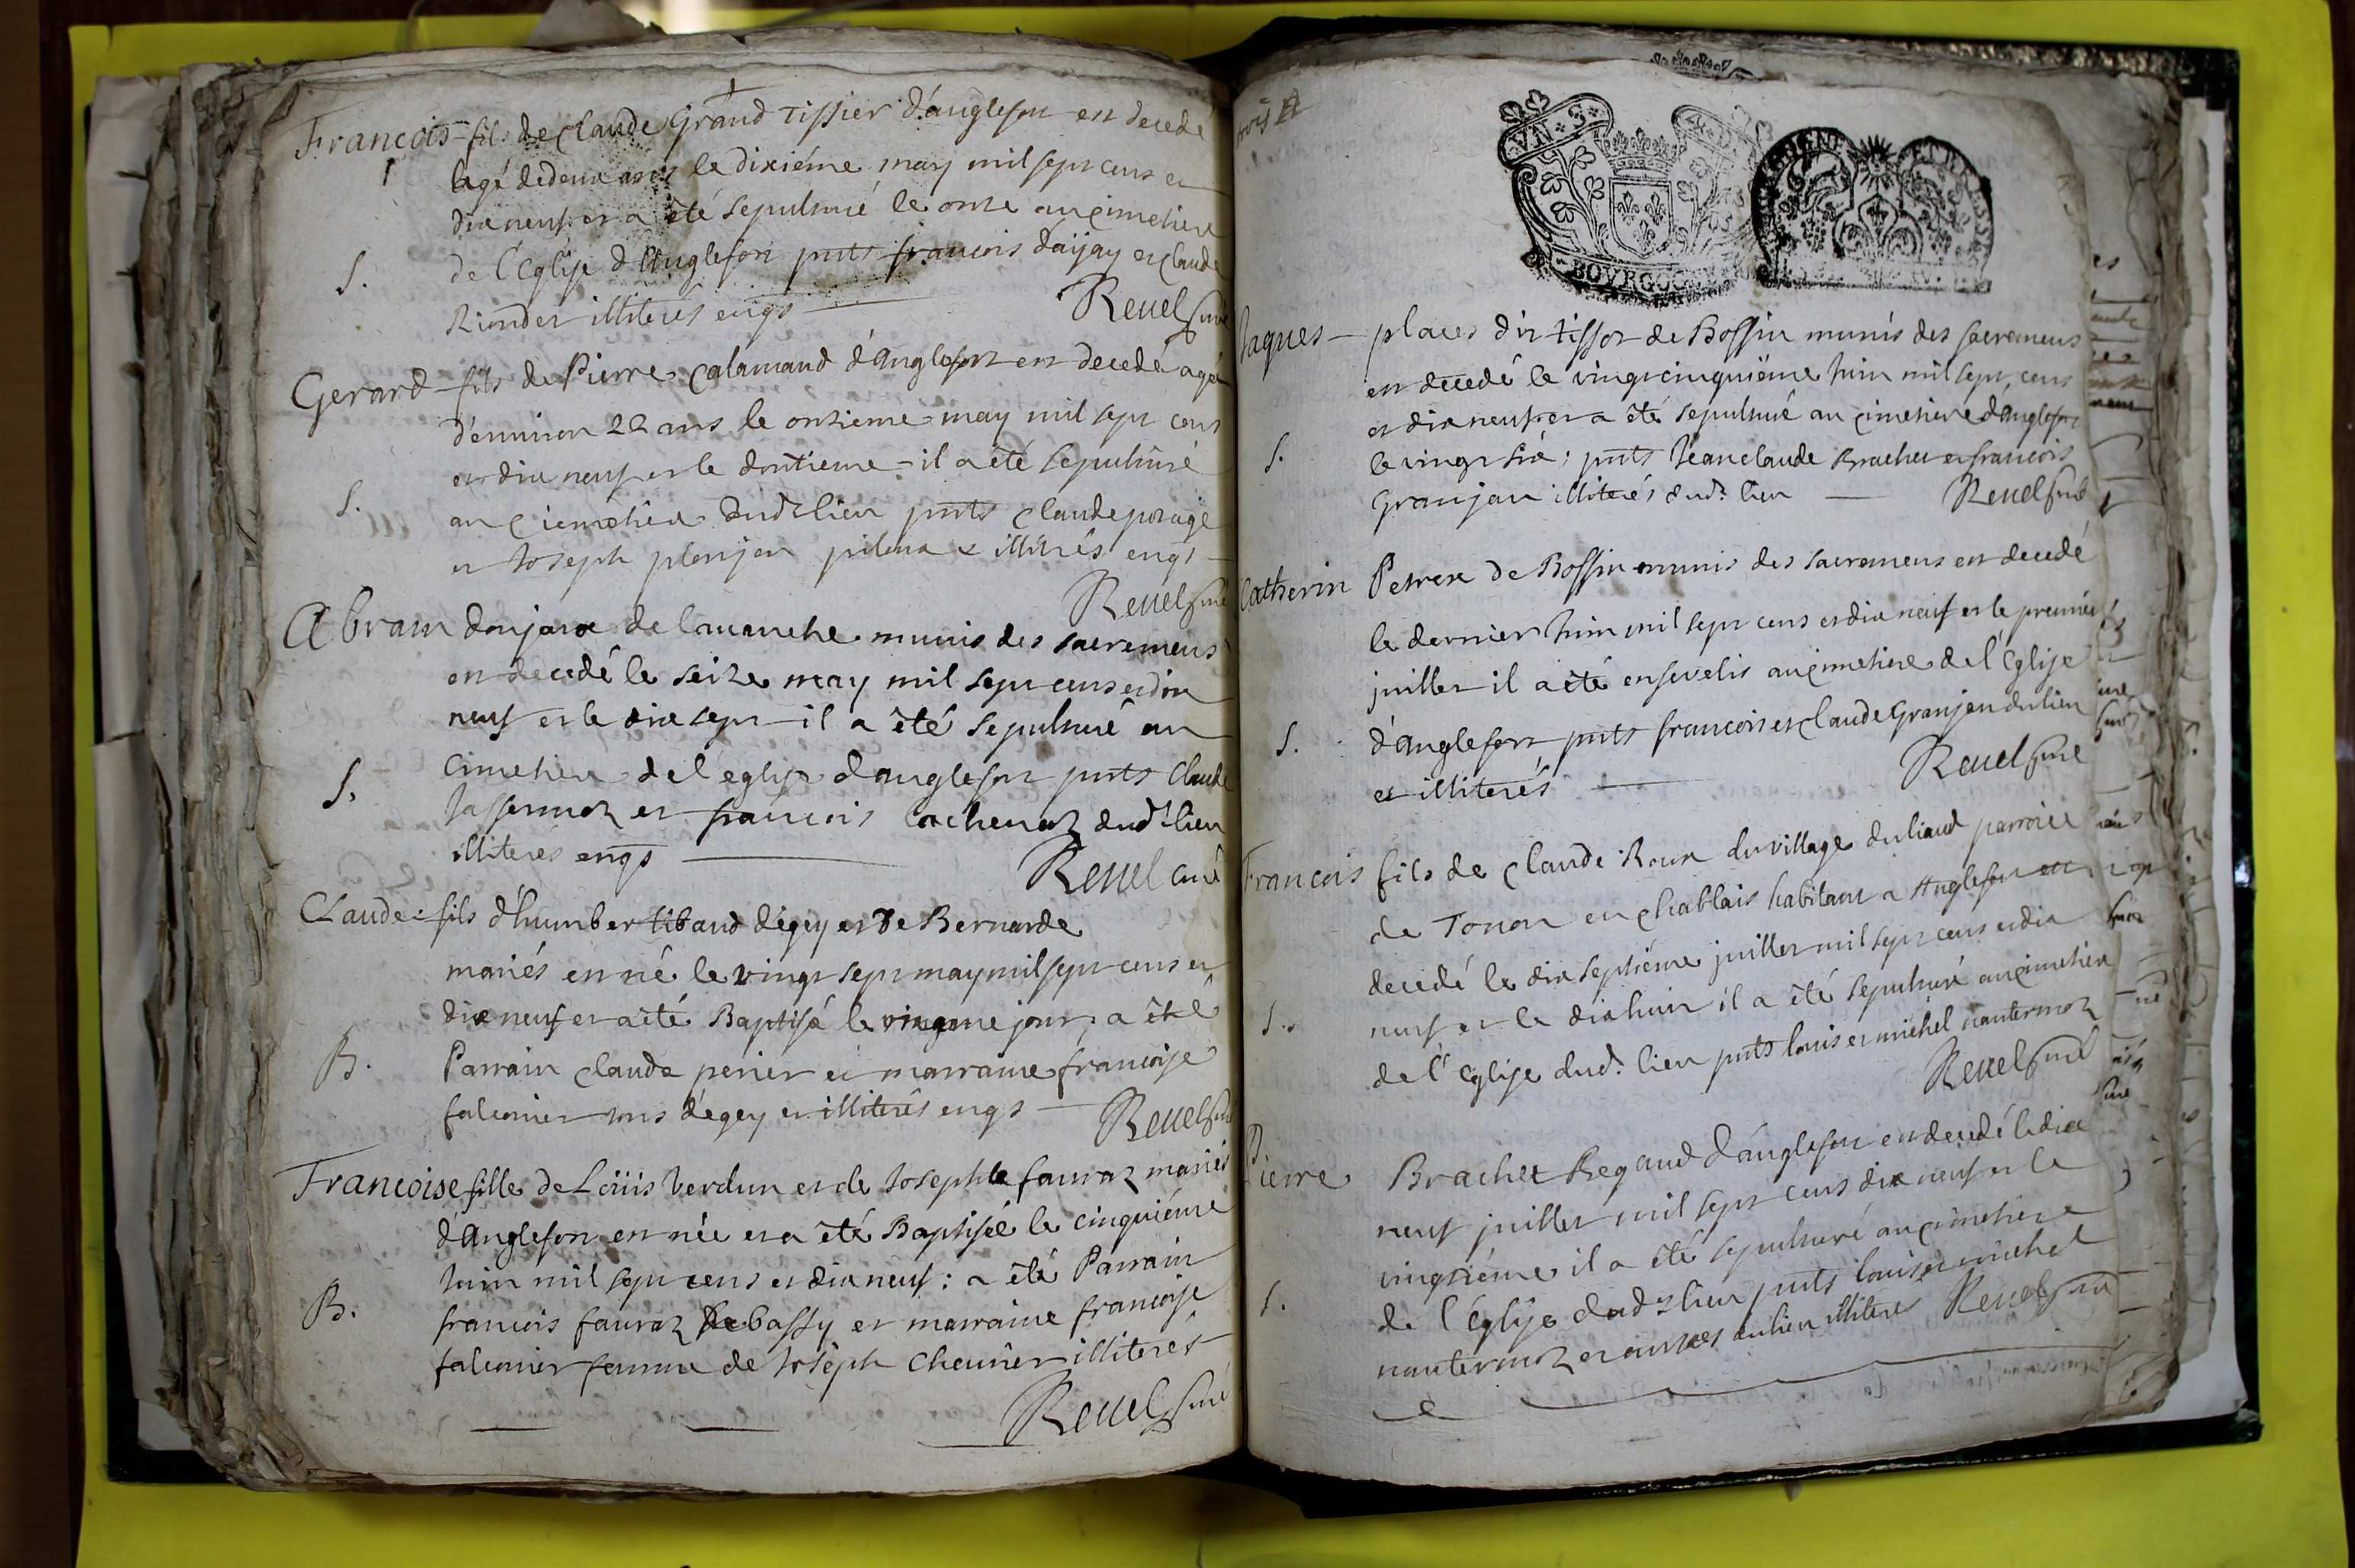 Francois fils de Claude Grand tissier d'anglefort est decedé
agé de deux mois le dixiéme may mil sept cens et
dix neuf et a êté sepulturé le onze au cimetiere
S. de l'Eglise d'Anglefort pnts francois daijay et Claude
Riondet illiterés enqs Reuel curé
Gerard fils de Pierre Calamand d'Anglefort est decedé agé
d'enuiron 22 ans le onzieme may mil sept cens
et dix neuf et le douzieme il a eté sepulturé
S. au Ciemetiere dud. lieu pnts Claude
et Joseph illiterés enqs
Reuel curé
Abram donjoux de lauanche munis des sacremens
est decedé le seize may mil sept cens et dix
neuf et le dix sept il a êté sepulturé au
S. Cimetiere de l'eglise d'anglefort pnts Claude
Jassermoz et francois lachenaz dud. lieu
illiterés enqs Reuel curé
Claude fils d'humbert tibaud d'égey et de Bernarde
mariés est né le vingt sept may mil sept cens et
dix neuf et a eté Baptisé le jour, a êté
B. Parrain Claude perier et marraine francoise
falconier tous d'égey et illiterés enqs Reuel curé
Francoise fille de Loüis Verdun et de Josephte fauraz mariés
d'Anglefort est née et a êté Baptisée le cinquiéme
Juin mil sept cens et dix neuf : a êté Parrain
B. francois fauraz de bassy et marraine francoise
falconier femme de Joseph Cheurier illiterés
Reuel curé
VN S
BOVRGOGNE
Jaques places dit tissot de Bossin munis des sacremens
est decedé le vingt cinquiéme Juin mil sept cens
et dix neuf et a êté sepulturé au cimetiere d'Anglefort
S. le vingt six ; pnts Jean claude Brachet et francois
Granjan illiterés dud. lieu Reuel curé
Catherin Petrex de Bossin munis des sacremens est decedé
le dernier Juin mil sept cens et dix neuf et le premier
juillet il a êté ensevelis au cimetiere de l'Eglise
S. d'Anglefort pnts francois et Claude Granjan du lieu
et illiterés Reuel curé
Francois fils de Claude Roux du village du liaud parroice
de Tonon en Chablais habitant a Anglefort est
decedé le dix septiéme juillet mil sept cens et dix
S. neuf et le dix huit il a êté sepulturé au cimetiere
de l'Eglise dud. lieu pnts louis et michel nantermoz
Reuel curé
Pierre Brachet Regaud d'Anglefort est decedé le dix
neuf juillet mil sept cens dix neuf et le
vingtiéme il a êté sepulturé au cimetiere
S. de l'Eglise dud. lieu pnts louis et michel
nantermoz et autres du lieu illiterés Reuel curé